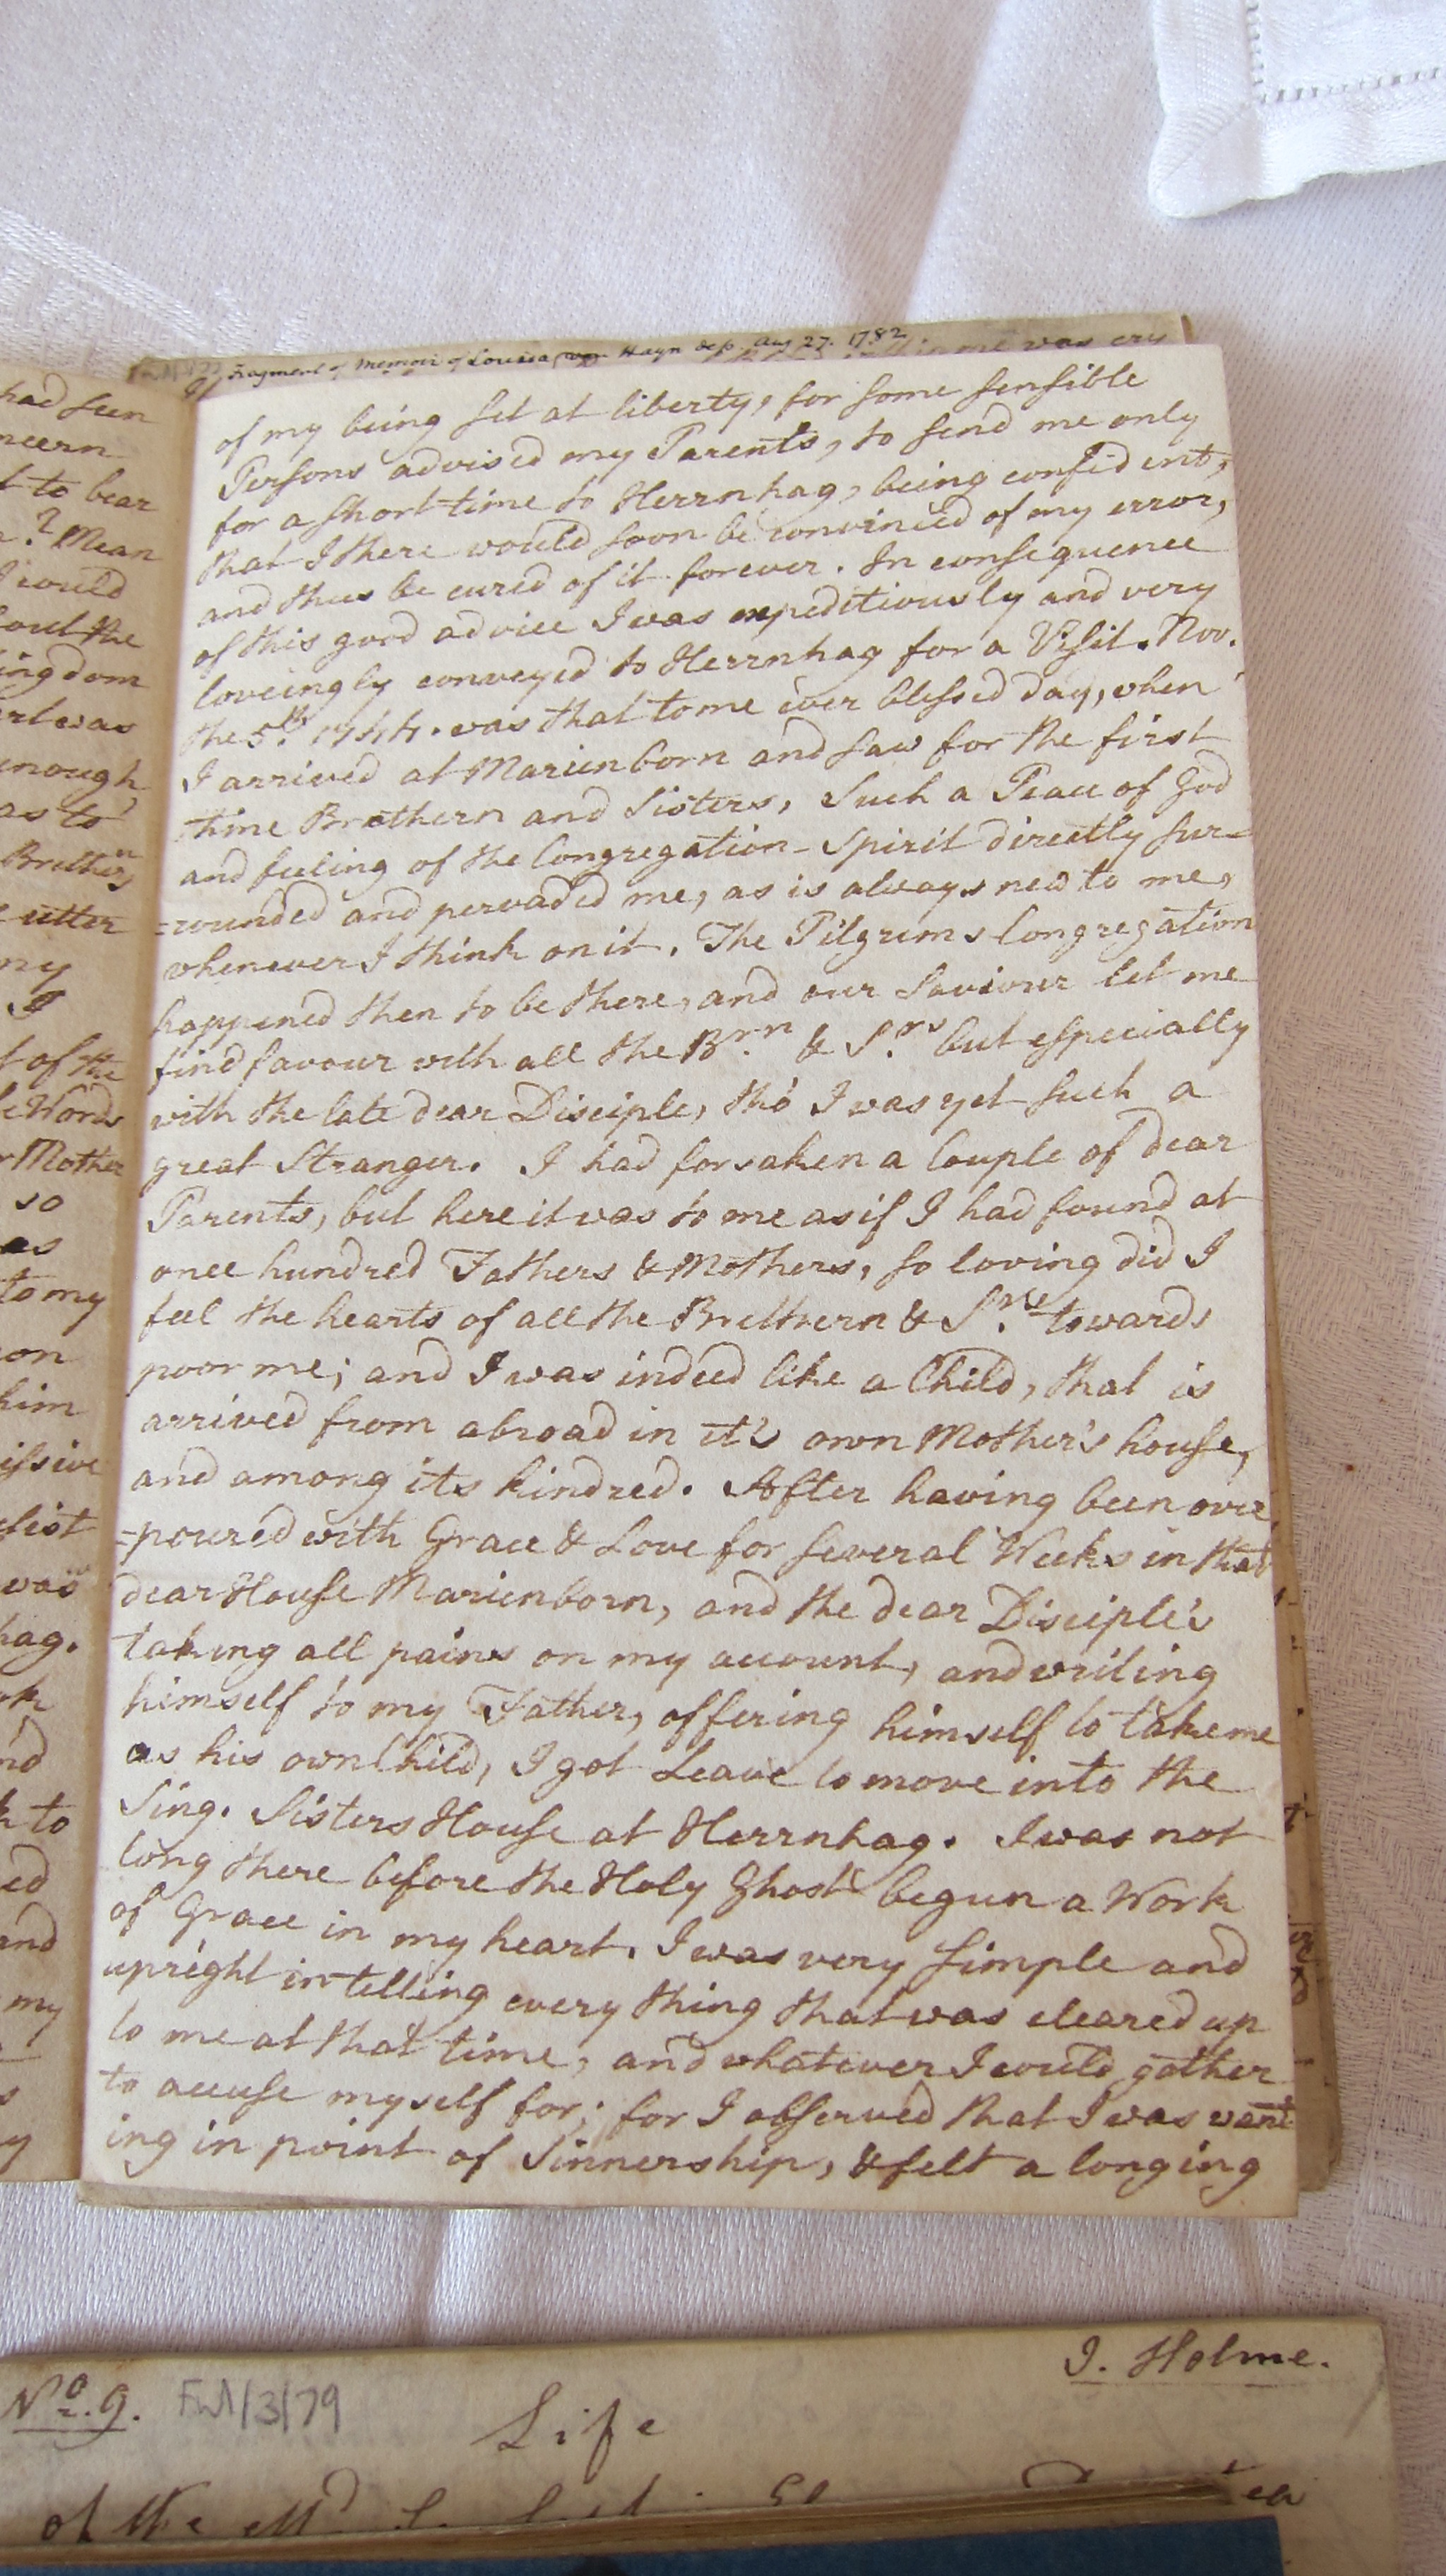 Fragment of Memoir of Louisa von Hayn dep. Aug 27. 1782
me was cry
of my being set at liberty, for some sensible
Persons advised my Parents, to send me only
for a short time to Herrnhag, being confident,
that I there would soon be convinced of my error,
and thus be cured of it forever. In consequence
of this good advice I was expeditiously and very
loveingly conveyed to Herrnhag for a Visit. Nov.
the 5th. 1744. was that to me ever blessed day, when
I arrived at Marienborn and saw for the first
time Brethern and Sisters, Such a Peace of God
and feeling of the Congregation-Spirit directly sur=
=rounded and pervaded me, as is always new to me,
whenever I think on it. The Pilgrims Congregation
happened then to be there, and our Saviour let me
find favour with all the Br.rn & S.rs but especially
with the late dear Disciple, tho' I was yet such a
great Stranger. I had forsaken a Couple of dear
Parents, but here it was to me as if I had found at
once hundred Fathers & Mothers, so loving did I
feel the hearts of all the Brethern & S.rs towards
poor me; and I was indeed like a Child, that is
arrived from abroad in it's own Mother's house,
and among its kindred. After having been over
=poured with Grace & Love for several Weeks in that
dear House Marienborn, and the dear Disciple's
taking all pains on my account, and writing
himself to my Father, offering himself to take me
as his own Child, I got Leave to move into the
Sing. Sisters House at Herrnhag. I was not
long there before the Holy Ghost begun a Work
of Grace in my heart. I was very simple and
upright in telling every thing that was cleared up
to me at that time, and whatever I could gather
to accuse myself for; for I observed that I was want
ing in point of Sinnership, & felt a longing
had seen
ncern
t to bear
? Mean
I would
out the
ingdom
erl was
enough
as to
Brethern
utter
my
I
t of the
Words
Mother
so
as
to my
ion
him
issive
list
was
hag.
nd
k to
ed
and
my
y
No. 9. FWA/3/79
I. Holme.
Life
of the